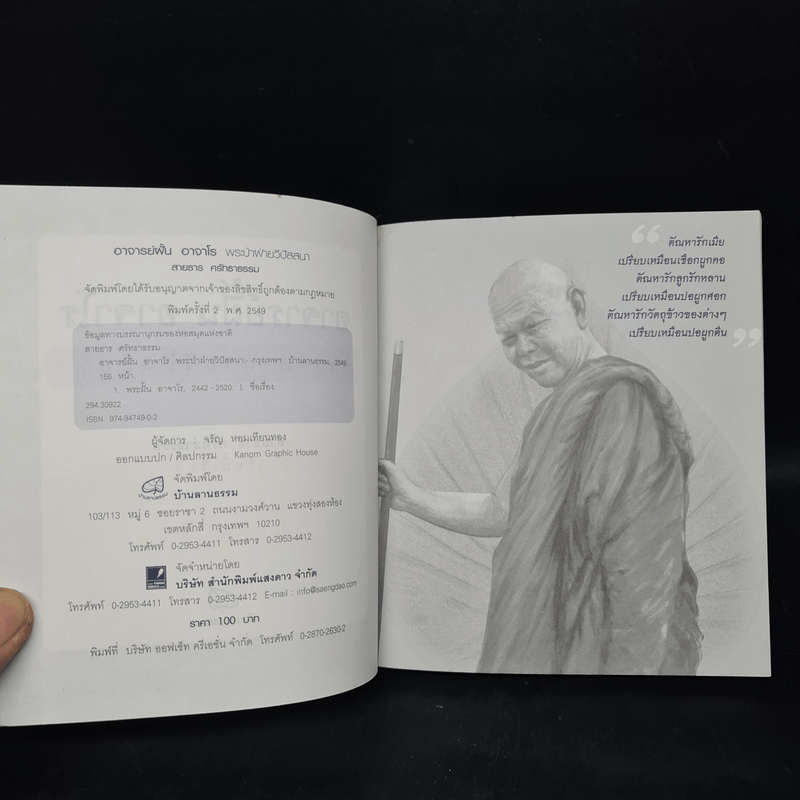 อาจารย์ฝั้น อาจาโร พระป่าฝ่ายวิปัสสนา
สายธาร ศรัทธาธรรม
จัดพิมพ์โดยได้รับอนุญาตจากเจ้าของลิขสิทธิ์ถูกต้องตามกฎหมาย
พิมพ์ครั้งที่ 2 พ.ศ. 2549
ข้อมูลทางบรรณานุกรมของหอสมุดแห่งชาติ
สายธาร ศรัทธาธรรม.
อาจารย์ฝั้น อาจาโร พระป่าฝ่ายวิปัสสนา.--กรุงเทพฯ: บ้านลานธรรม, 2549
156 หน้า.
1. พระฝั้น อาจาโร, 2442 - 2520. I. ชื่อเรื่อง.
294.30922
ISBN 974-94749-0-2
ผู้จัดการ : จรัญ หอมเทียนทอง
ออกแบบปก / ศิลปกรรม : Kanom Graphic House
จัดพิมพ์โดย
บ้านลานธรรม
บ้านลานธรรม
103/113 หมู่ 6 ซอยราชา 2 ถนนงามวงศ์วาน แขวงทุ่งสองห้อง
เขตหลักสี่ กรุงเทพฯ 10210
โทรศัพท์ 0-2953-4411 โทรสาร 0-2953-4412
จัดจำหน่ายโดย
บริษัท สำนักพิมพ์แสงดาว จำกัด
โทรศัพท์ 0-2953-4411 โทรสาร 0-2953-4412 E-mail : info@saengdao.com
ราคา 100 บาท
พิมพ์ที่ บริษัท ออฟเซ็ท ครีเอชั่น จำกัด โทรศัพท์ 0-2870-2630-2
“ ตัณหารักเมีย
เปรียบเหมือนเชือกผูกคอ
ตัณหารักลูกรักหลาน
เปรียบเหมือนปอผูกศอก
ตัณหารักวัตถุข้าวของต่างๆ
เปรียบเหมือนปอผูกตีน ”